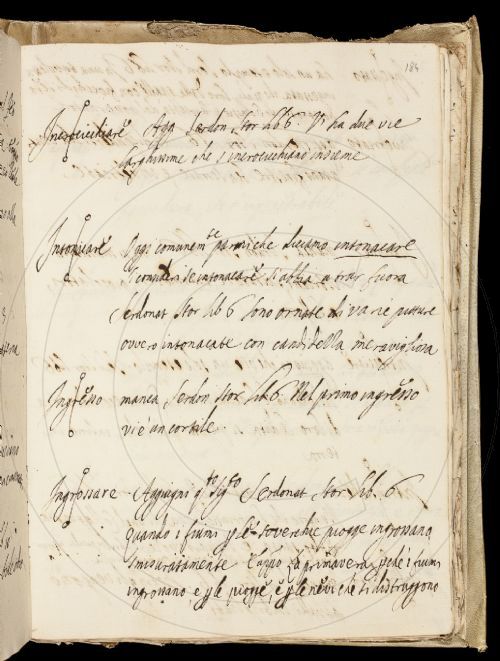 184
Incrocicchiare Agg. Serdon Stor lib 6. Vi ha due vie
larghissime che s'incrocicchiano insieme
Intonicare Oggi comunem.te parmi che diciamo intonacare
Si consideri se intonacare si abbia a trar fuora
Serdonat Stor lib 6 sono ornate di varie pitture
ovvero intonacate con candidella meravigliosa
Ingresso manca Serdon Stor lib 6. Nel primo ingresso
vi è un cortile
Ingrossare Aggiugni Serdonat Stor lib. 6
quando i fiumi p le soverchie piogge ingrossano
smisuratamente la primavera i fiumi
ingrossano e p le piogge, e p le nevi che si distruggono